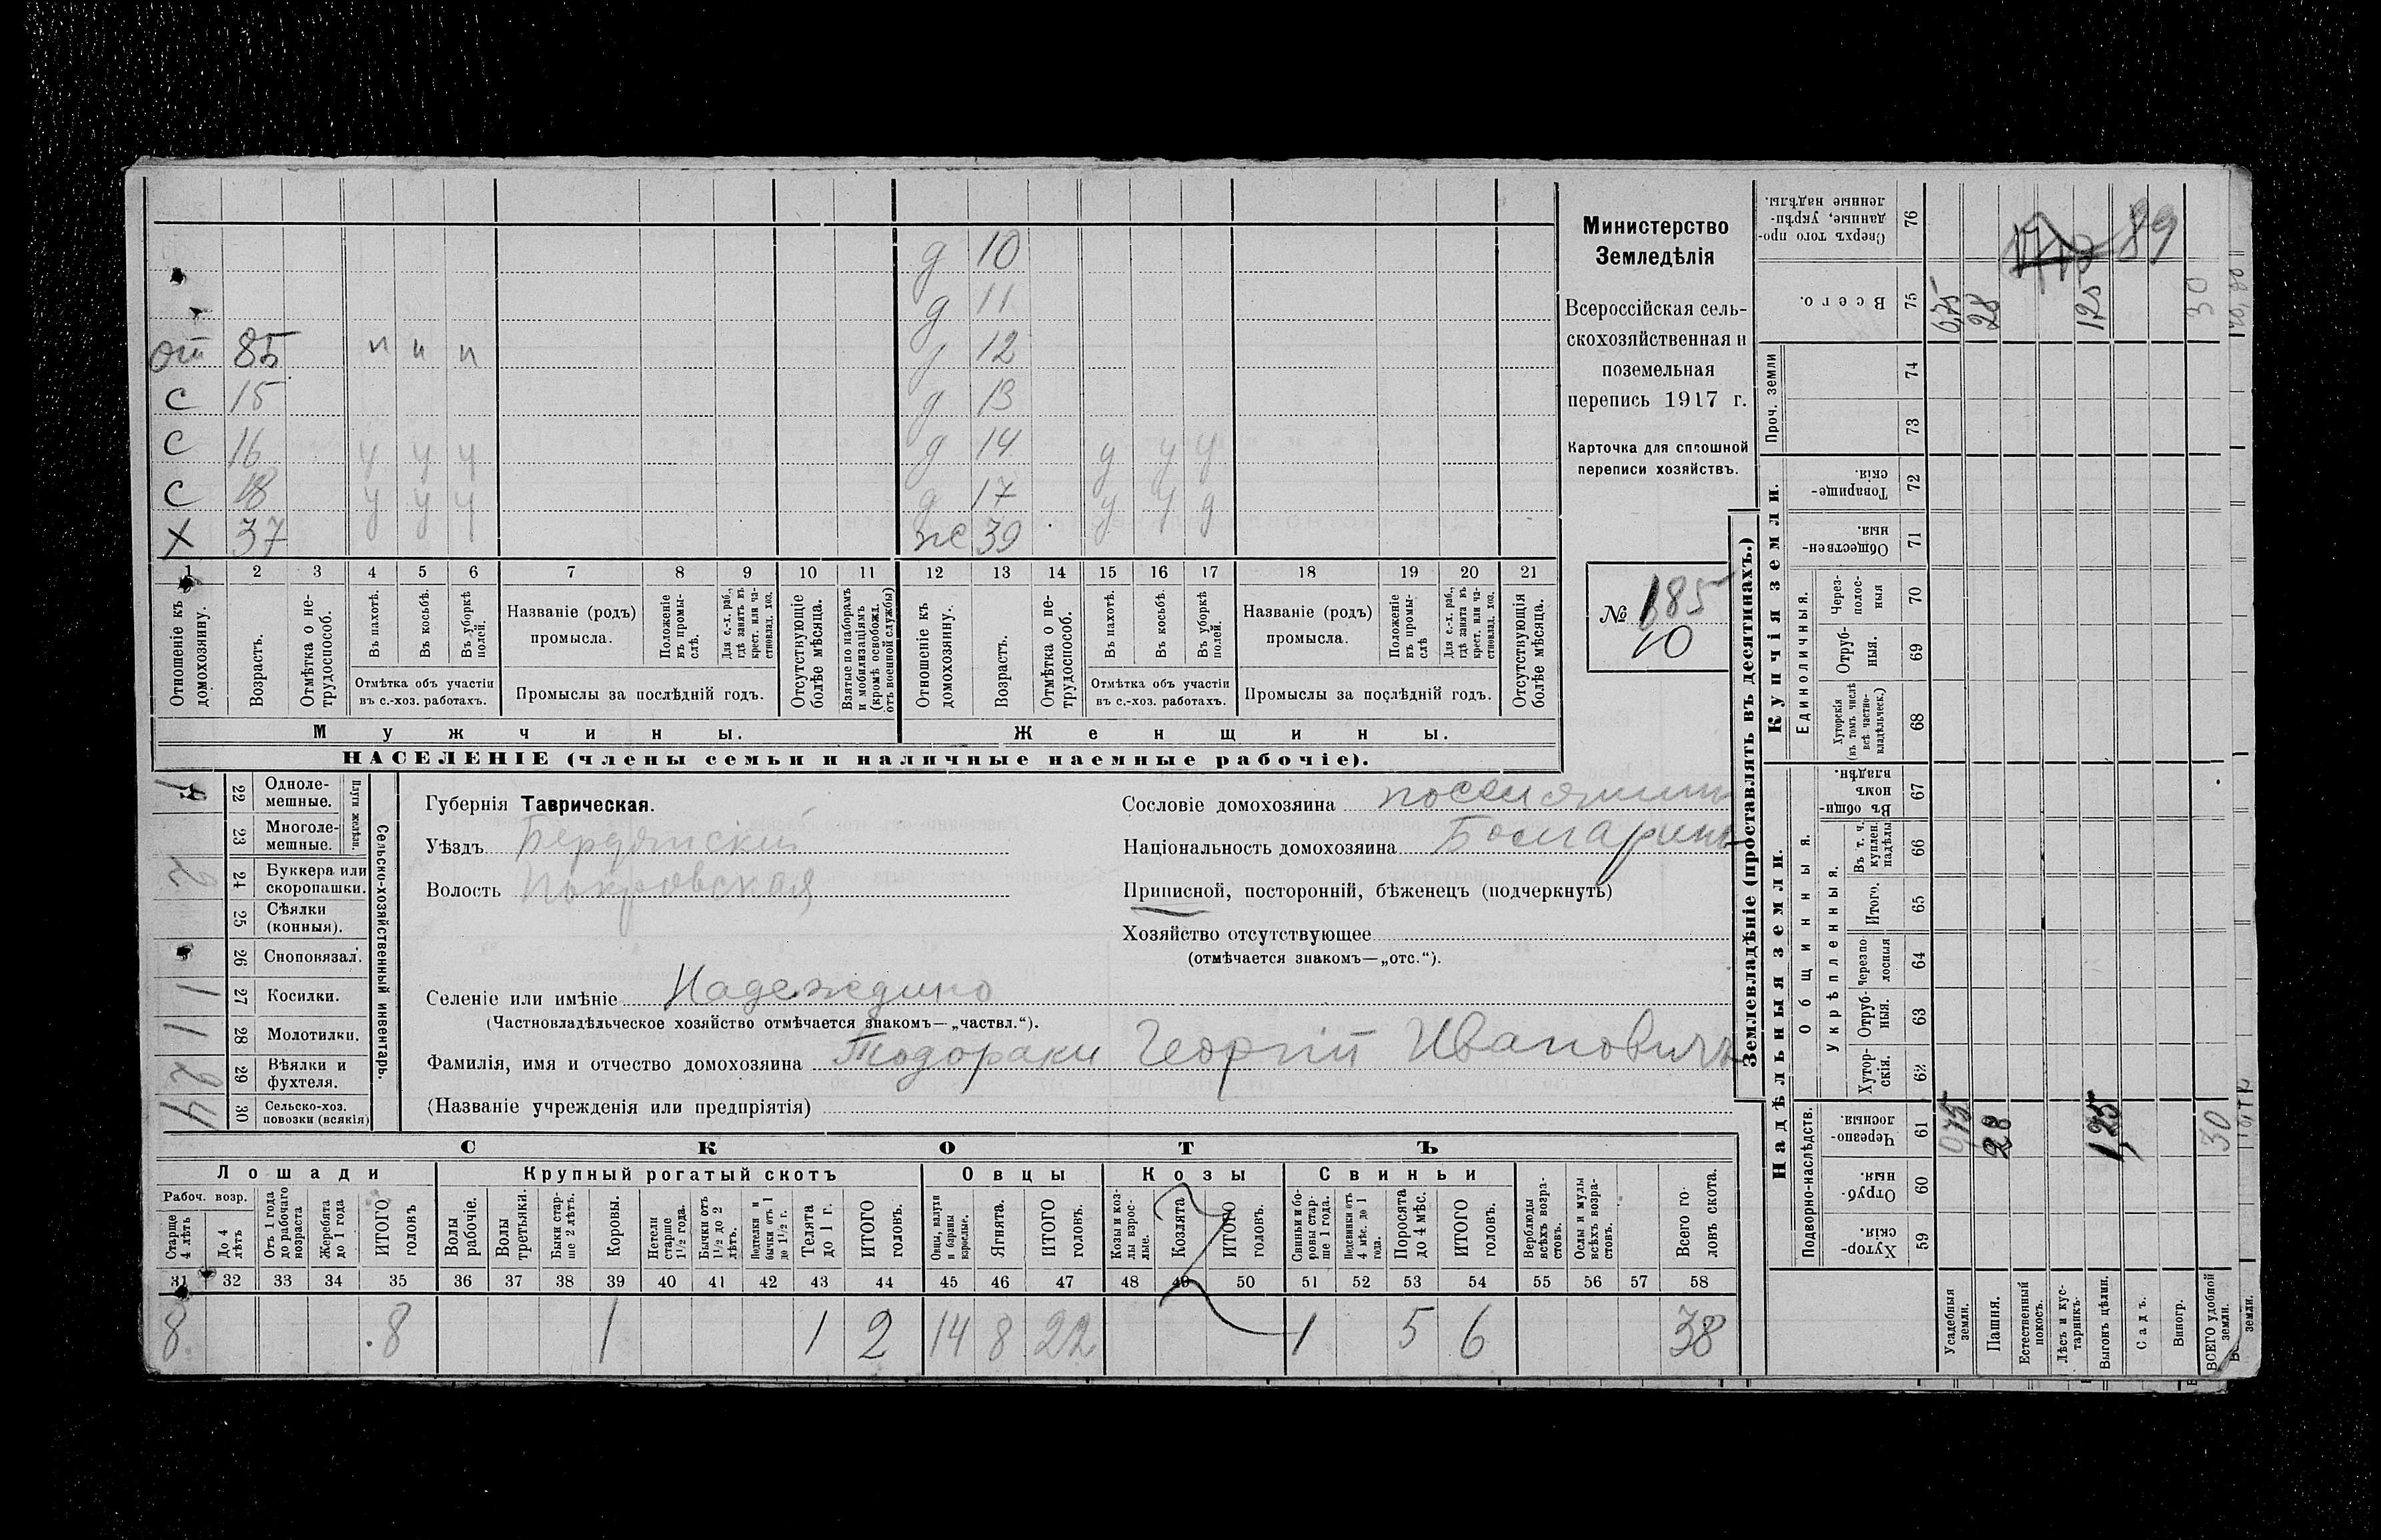 д 10
д 11
от 85 н н н д 12
с 15 д 13
с 16 у у у д 14 у у у
с 18 у у у д 17 у у у
х 37 же 39
1 2 3 4 5 6 7 8 9 10 11 12 13 14 15 16 17 18 19 20 21
Отношеніе къ домохозяину.
Возрастъ.
Отмѣтка о не-
трудоспособ.
Въ пахотѣ.
Въ косьбѣ.
Въ уборкѣ
полей.
Отмѣтка объ участіи
въ с.-хоз. работахъ.
Названіе (родъ)
промысла.
Положеніе
въ промы-
слѣ.
Для с.-х. раб.,
гдѣ занятъ въ
крест. или ча-
стновлад. хоз.
Промыслы за послѣдній годъ.
Отсутствующіе
болѣе мѣсяца.
Взятые по наборамъ
и мобилизаціямъ
(кромѣ освобожд.
отъ военной службы)
Отношеніе къ
домохозяину.
Возрастъ.
Отмѣтка о не-
трудоспособ.
Въ пахотѣ.
Въ косьбѣ.
Въ уборкѣ
полей.
Отмѣтка объ участіи
въ с.-хоз. работахъ.
Названіе (родъ)
промысла.
Положеніе
въ промы-
слѣ
Для с.-х. раб.,
гдѣ занята въ
крест. или ча-
стновлад. хоз.
Промыслы за послѣдній годъ.
Отсутствующія
болѣе мѣсяца.
Мужчины. Женщины.
НАСЕЛЕНІЕ (члены семьи и наличные наемные рабочіе).
Министерство
Земледѣлія
Всероссійская сель-
скохозяйственная и
поземельная
перепись 1917 г.
Карточка для сплошной
переписи хозяйствъ.
№ 185
10
22 Одноле-
мешные.
23 Многоле-
мешные.
Плуги желѣзн.
2 24 Буккера или
скоропашки.
25 Сѣялки
(конныя).
26 Сноповязал.
1 27 Косилки.
1 28 Молотилки.
2 29 Вѣялки и
фухтеля.
4 30 Сельско-хоз.
повозки (всякія)
Сельско-хозяйственный инвентарь.
Губернія Таврическая.
Уѣздъ Бердянскій
Волость Покровская
Селеніе или имѣніе Надеждино
(Частновладѣльческое хозяйство отмѣчается знакомъ—„частвл.“).
Фамилія, имя и отчество домохозяина Тодораки Георгій Ивановичъ
(Названіе учрежденія или предпріятія)
Сословіе домохозяина поселянинъ
Національность домохозяина Болгаринъ
Приписной, посторонній, бѣженецъ (подчеркнуть)
Хозяйство отсутствующее
(отмѣчается знакомъ—„отс.“).
СКОТЪ
Лошади Крупный рогатый скотъ Овцы Козы Свиньи
Рабоч. возр.
Старше
4 лѣтъ
До 4
лѣтъ
Отъ 1 года
до рабочаго
возраста
Жеребята
до 1 года
ИТОГО
головъ
Волы
рабочіе.
Волы
третьяки.
Быки стар-
ше 2 лѣтъ.
Коровы.
Нетели
старше
1½ года.
Бычки отъ
1½ до 2
лѣтъ.
Подтелки и
бычки отъ 1
до 1½ г.
Телята
до 1 г.
ИТОГО
головъ.
Овцы, валухи
и бараны
взрослые.
Ягнята.
ИТОГО
головъ.
Козы и коз-
лы взрос-
лые.
Козлята
ИТОГО
головъ.
Свиньи и бо-
ровы стар-
ше 1 года.
Подсвинки отъ
4 мѣс. до 1
года.
Поросята
до 4 мѣс.
ИТОГО
головъ.
Верблюды
всѣхъ возра-
стовъ.
Ослы и мулы
всѣхъ возра-
стовъ.
Всего го-
ловъ скота.
31 32 33 34 35 36 37 38 39 40 41 42 43 44 45 46 47 48 49 50 51 52 53 54 55 56 57 58
8 8 1 1 2 14 8 22 1 5 6 38
Землевладѣніе (проставлять въ десятинахъ.)
Надѣльныя земли. Купчія земли. Проч. земли
Подворно-наслѣдств.
Общинныя.
Укрѣпленныя.
Единоличныя.
Сверхъ того про-
данные, укрѣп-
ленные надѣлы. 76
Всего. 75
74
73
Товарище-
скія. 72
Обществен-
ныя 71
Через-
полос-
ныя 70
Отруб-
ныя. 69
Хуторскія
(въ томъ числѣ
всѣ частно-
владѣльческ.) 68
Въ общи-
номъ
владѣн. 67
Въ т. ч.
куплен.
надѣлы 66
Итого. 65
Черезпо-
лосныя 64
Отруб-
ныя. 63
Хутор-
скія. 62
Черезпо-
лосныя. 61
Отруб-
ныя. 60
Хутор-
скія. 59
89
0,75 28 1,25 30
0,75 28 1,25 30
Усадебныя
земли.
Пашня.
Естественный
покосъ.
Лѣсъ и кус-
тарникъ.
Выгонъ цѣлин.
Садъ.
Виногр.
ВСЕГО удобной
земли.
земли.